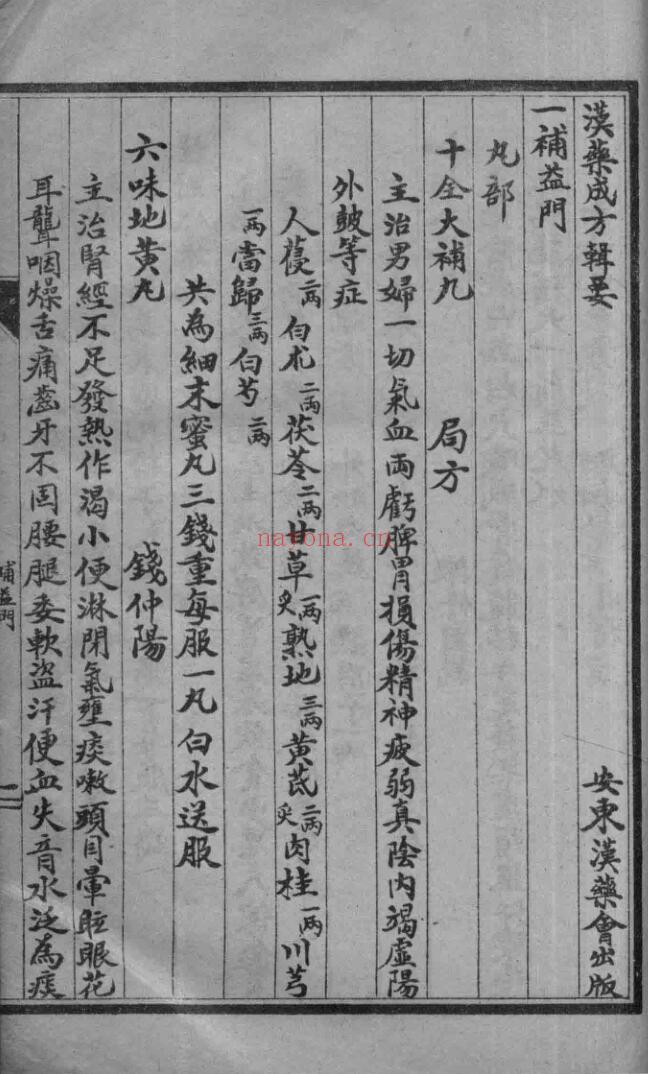 漢藥成方輯要
安東漢藥會出版
一補益門
丸部
十全大補丸 局方
主治男婦一切氣血両虧脾胃損傷精神疲弱真陰内竭虛陽
外鼓等症
人葠二両白朮二両茯苓二両甘草一両炙熟地三両黃茋二両炙肉桂一両川芎
一両當歸三両白芍二両
共為細末蜜丸三錢重每服一丸白水送服
六味地黃丸 錢仲陽
主治腎經不足發熱作渴小便淋閉氣壅痰嗽頭目暈眩眼花
耳聾咽燥舌痛齒牙不固腰腿委軟盜汗便血失音水泛為痰
補益門
一
navona.cn